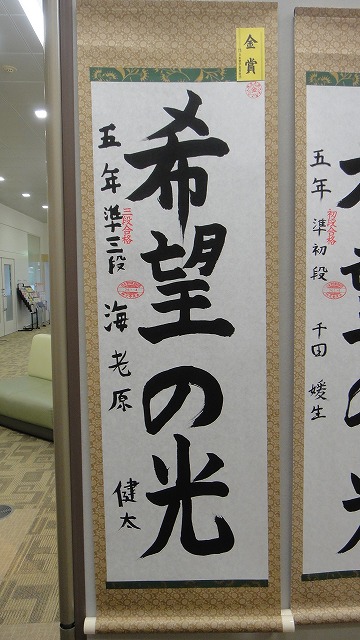 金賞
希望の光
五年 準三段 海老原 健太
三段合格
五年 準初段 千田 媛生
初段合格